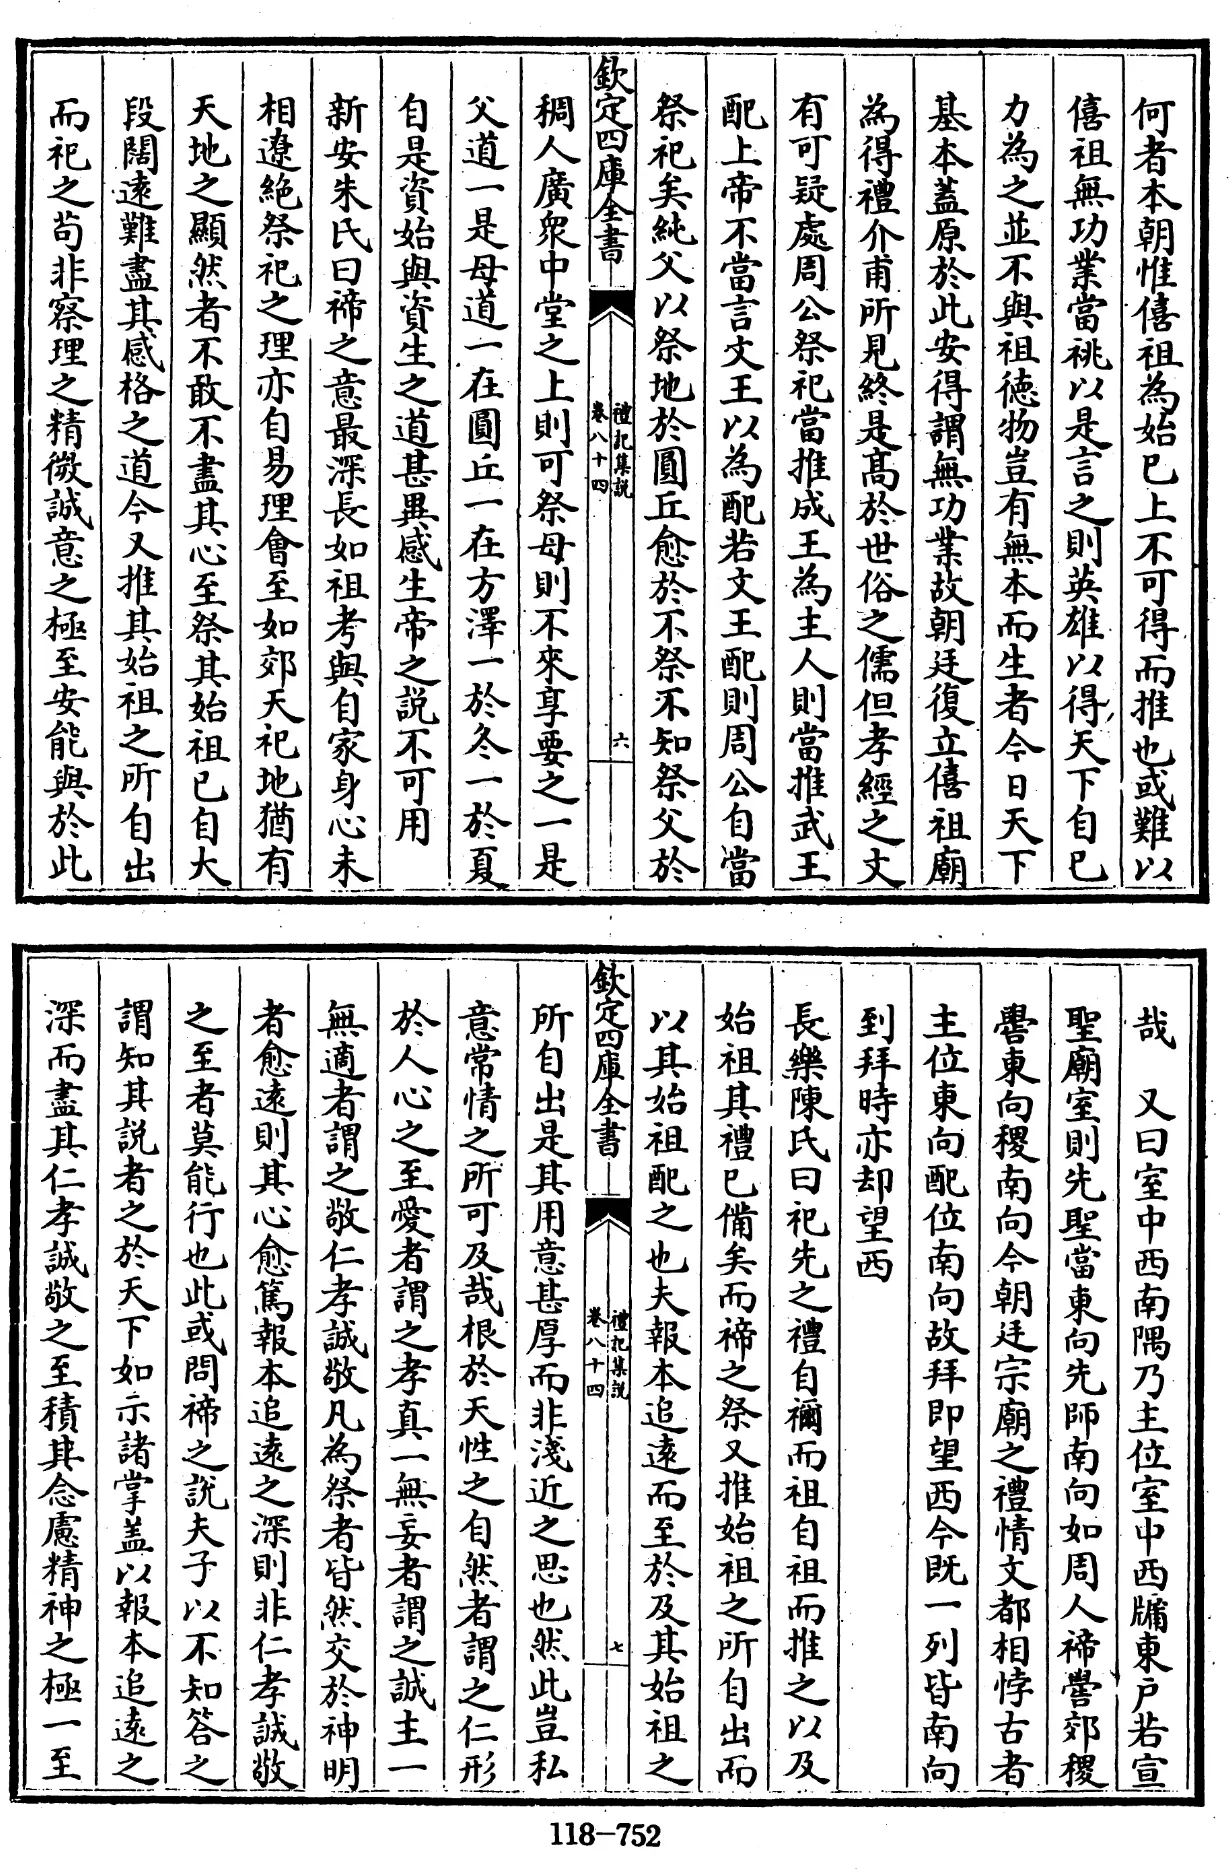 何者本朝惟僖祖為始已上不可得而推也或難以
僖祖無功業當祧以是言之則英雄以得天下自已
力為之並不與祖徳物豈有無本而生者今日天下
基本蓋原於此安得謂無功業故朝廷復立僖祖廟
為得禮介甫所見終是高於世俗之儒但孝經之文
有可疑處周公祭祀當推成王為主人則當推武王
配上帝不當言文王以為配若文王配則周公自當
祭祀矣純父以祭地於圓丘愈於不祭不知祭父於
欽定四庫全書
禮記集説
卷八十四
六
稠人廣衆中堂之上則可祭母則不來享要之一是
父道一是母道一在圓丘一在方澤一於冬一於夏
自是資始與資生之道甚異感生帝之説不可用
新安朱氏曰禘之意最深長如祖考與自家身心未
相遼絶祭祀之理亦自易理會至如郊天祀地猶有
天地之顯然者不敢不盡其心至祭其始祖已自大
段闊逺難盡其感格之道今又推其始祖之所自出
而祀之茍非察理之精微誠意之極至安能與於此
哉　又曰室中西南隅乃主位室中西牖東户若宣
聖廟室則先聖當東向先師南向如周人禘嚳郊稷
嚳東向稷南向今朝廷宗廟之禮情文都相悖古者
主位東向配位南向故拜即望西今既一列皆南向
到拜時亦却望西
長樂陳氏曰祀先之禮自禰而祖自祖而推之以及
始祖其禮已備矣而禘之祭又推始祖之所自出而
以其始祖配之也夫報本追逺而至於及其始祖之
欽定四庫全書
禮記集説
卷八十四
七
所自出是其用意甚厚而非淺近之思也然此豈私
意常情之所可及哉根於天性之自然者謂之仁形
於人心之至愛者謂之孝真一無妄者謂之誠主一
無適者謂之敬仁孝誠敬凡為祭者皆然交於神明
者愈逺則其心愈篤報本追逺之深則非仁孝誠敬
之至者莫能行也此或問禘之説夫子以不知答之
謂知其説者之於天下如示諸掌蓋以報本追逺之
深而盡其仁孝誠敬之至積其念慮精神之極一至
118-752